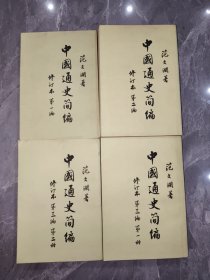 范文澜著
中國通史简编
修订本第一编
范文澜著
中國通史简编
修订本第二编
范文澜著
中國通史简编
修订本第三编第二册
范文澜著
中國通史简编
修订本第三编第一册